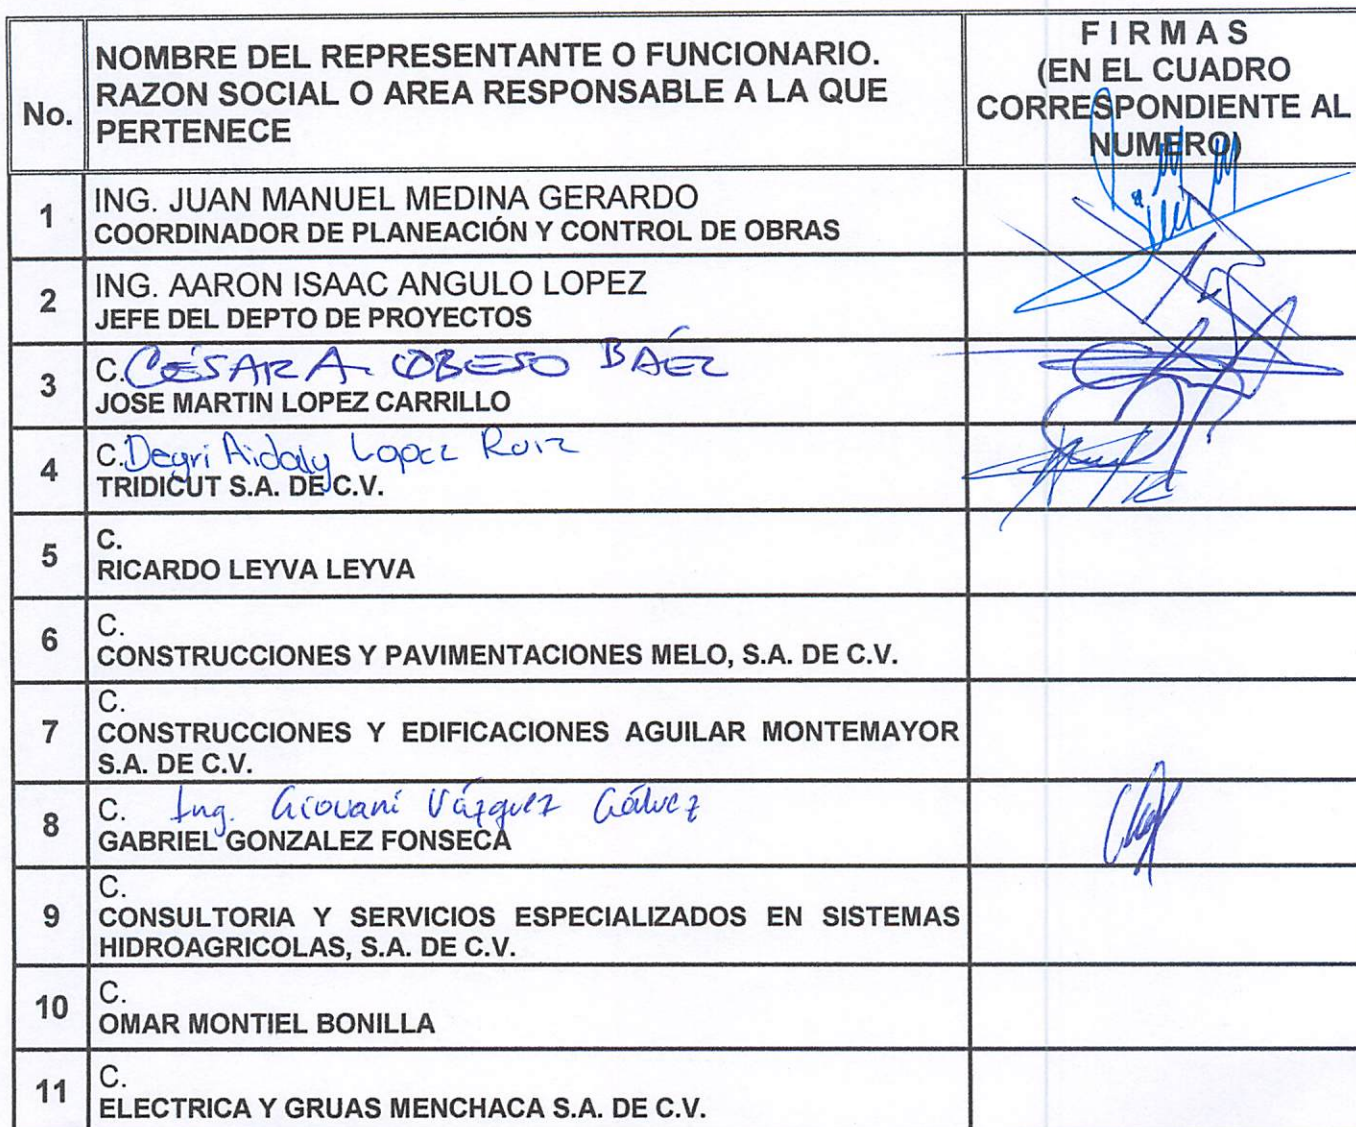 No.
NOMBRE DEL REPRESENTANTE O FUNCIONARIO.
RAZON SOCIAL O AREA RESPONSABLE A LA QUE
PERTENECE
F I R M A S
(EN EL CUADRO
CORRESPONDIENTE AL
NUMERO)
1
ING. JUAN MANUEL MEDINA GERARDO
COORDINADOR DE PLANEACIÓN Y CONTROL DE OBRAS
2
ING. AARON ISAAC ANGULO LOPEZ
JEFE DEL DEPTO DE PROYECTOS
3
C. CÉSAR A. OBESO BÁEZ
JOSE MARTIN LOPEZ CARRILLO
4
C. Deyri Aidaly Lopez Ruiz
TRIDICUT S.A. DE C.V.
5
C.
RICARDO LEYVA LEYVA
6
C.
CONSTRUCCIONES Y PAVIMENTACIONES MELO, S.A. DE C.V.
7
C.
CONSTRUCCIONES Y EDIFICACIONES AGUILAR MONTEMAYOR
S.A. DE C.V.
8
C. Ing. Giovani Vázquez Gálvez
GABRIEL GONZALEZ FONSECA
9
C.
CONSULTORIA Y SERVICIOS ESPECIALIZADOS EN SISTEMAS
HIDROAGRICOLAS, S.A. DE C.V.
10
C.
OMAR MONTIEL BONILLA
11
C.
ELECTRICA Y GRUAS MENCHACA S.A. DE C.V.